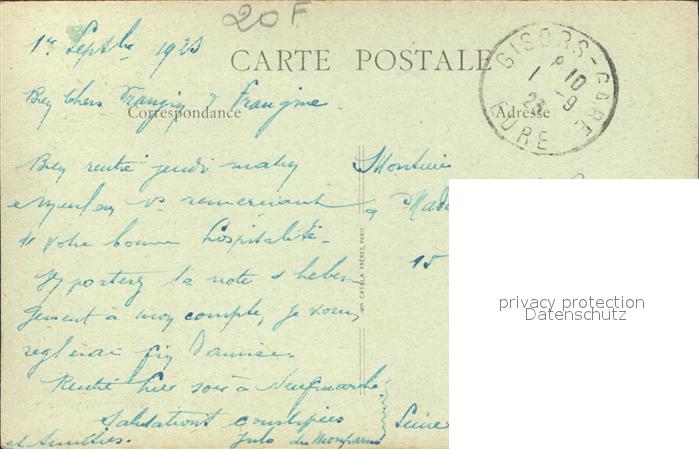 20F
1er Septbre 1923
CARTE POSTALE
GISORS-GARE
1 -9
23
EURE
Correspondance
Adresse
Bien Chers Frangin & Frangine
Bien rentré jeudi matin
vs remerciant
de votre bonne hospitalité.
la note d'héber
gement à mon compte, je vous
réglerai fin d'année.
Rentré hier soir à Neufmarché.
Salutations constipées
et
Monsieur
&
15
Seine
IMP. CATALA FRÈRES, PARIS
privacy protection
Datenschutz